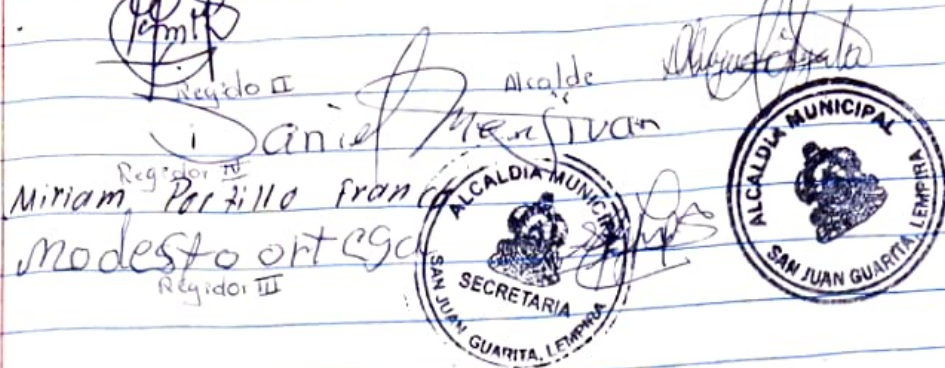 Regido II
Alcalde
Daniel Menjivar
Regidor IV
Miriam Portillo Franco
Modesto ortega
Regidor III
ALCALDIA MUNICIPAL
SECRETARIA
SAN JUAN GUARITA, LEMPIRA
ALCALDIA MUNICIPAL
SAN JUAN GUARITA, LEMPIRA